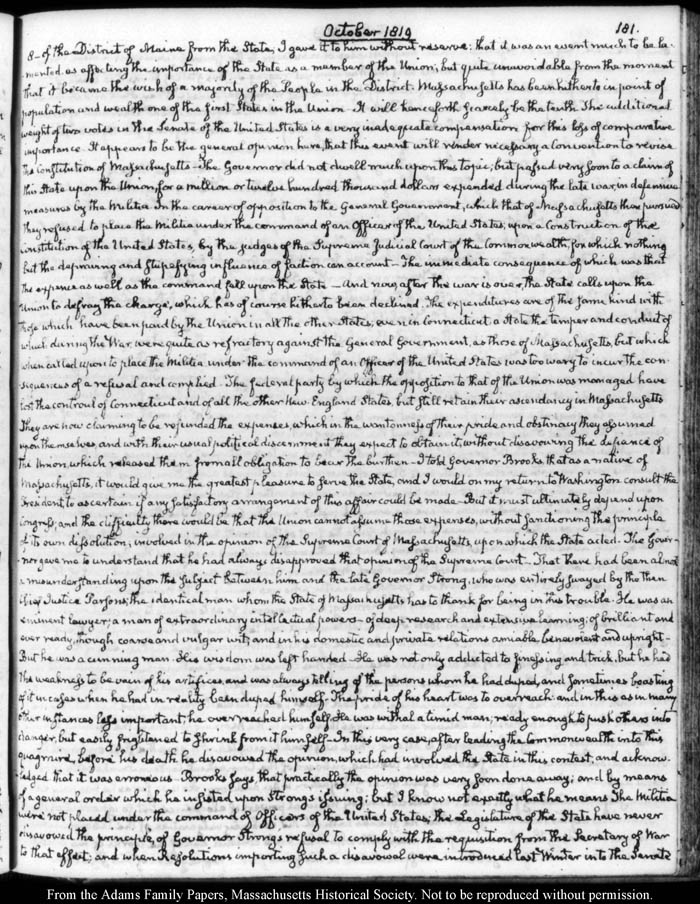 October 1819
181.
8- of the District of Maine from the State, I gave it to him without reserve: that it was an event much to be la-
mented, as affecting the importance of the State as a member of the Union; but quite unavoidable from the moment
that it became the wish of a majority of the People in the District. Massachusetts has been hitherto in point of
population and wealth one of the first States in the Union. It will henceforth scarcely be the tenth. The additional
weight of two votes in the Senate of the United States is a very inadequate compensation for this loss of comparative
importance. It appears to be the general opinion here, that this event will render necessary a Convention to revise
the Constitution of Massachusetts - The Governor did not dwell much upon this topic; but passed very soon to a claim of
this State upon the Union, for a million or twelve hundred thousand dollars expended during the late war, in defensive
measures by the Militia. In the career of opposition to the General Government, which that of Massachusetts then pursued
they refused to place the Militia under the command of an Officer of the United States, upon a Construction of the
Constitution of the United States, by the judges of the Supreme Judicial Court of the Commonwealth, for which nothing
but the depraving and stupefying influence of faction can account - The immediate consequence of which was that
the expence as well as the command fell upon the State - And now, after the war is over, the State calls upon the
Union to defray the charge, which has of course hitherto been declined. The expenditures are of the same kind with
those which have been paid by the Union in all the other States, even in Connecticut a State the temper and conduct of
which during the War, were quite as refractory against the General Government, as those of Massachusetts, but which
when called upon to place the Militia under the command of an Officer of the United States was too wary to incur the con-
sequences of a refusal and complied. The federal party by which the opposition to that of the Union was managed have
lost the controul of Connecticut and of all the other New England States, but still retain their ascendancy in Massachusetts
They are now claiming to be refunded the expenses, which in the wantonness of their pride and obstinacy they assumed
upon themselves, and with their usual political discernment they expect to obtain it, without disavowing the defiance of
the Union, which released them from all obligation to bear the burthen - I told Governor Brooks that as a native of
Massachusetts, it would give me the greatest pleasure to serve the State, and I would on my return to Washington consult the
President to ascertain if any satisfactory arrangement of this affair could be made - But it must ultimately depend upon
Congress; and the difficulty there would be that the Union cannot assume those expenses, without sanctioning the principle
of its own dissolution; involved in the opinion of the Supreme Court of Massachusetts, upon which the State acted. The Gover-
nor gave me to understand that he had always disapproved that opinion of the Supreme Court - That there had been almost
a misunderstanding upon the subject between him and the late Governor Strong, who was entirely swayed by the then
Chief Justice Parsons, the identical man whom the State of Massachusetts has to thank for being in this trouble. He was an
eminent lawyer; a man of extraordinary intellectual powers - of deep research and extensive learning; of brilliant and
ever ready, though coarse and vulgar wit; and in his domestic and private relations amiable, benevolent and upright -
But he was a cunning man. His wisdom was left handed - He was not only addicted to finessing and trick, but he had
the weakness to be vain of his artifices, and was always telling of the persons whom he had duped, and sometimes boasting
of it in cases when he had in reality been duped himself. The pride of his heart was to overreach: and in this as in many
other instances less important, he overreached himself. He was withal a timid man, ready enough to push others into
danger, but easily frightened to shrink from it himself - In this very case, after leading the Commonwealth into this
quagmire, before his death he disavowed the opinion, which had involved the State in this contest, and acknow-
ledged that it was erroneous. Brooks says that practically the opinion was very soon done away; and by means
of a general order which he insisted upon Strong's issuing; but I know not exactly what he means. The Militia
were not placed under the command of Officers of the United States; the Legislature of the State have never
disavowed the principle, of Governor Strong's refusal to comply with the requisition from the Secretary of War
to that effect; and when Resolutions importing such a disavowal were introduced last Winter into the Senate
From the Adams Family Papers, Massachusetts Historical Society. Not to be reproduced without permission.